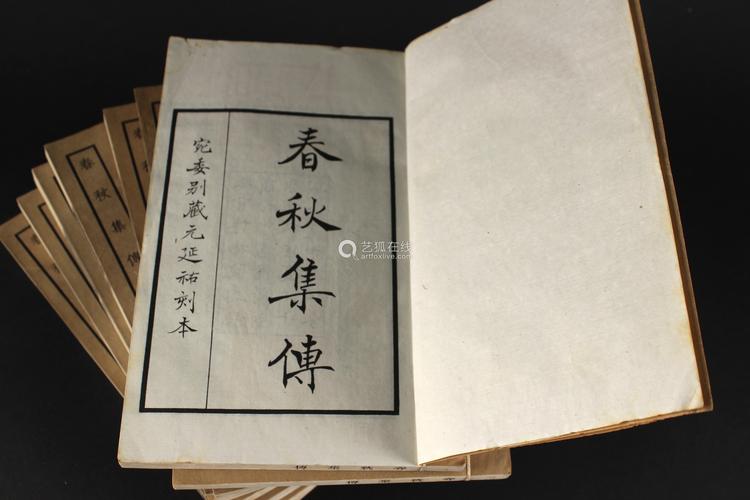 春秋集傳
宛委别藏元延祐刻本
艺狐在线
artfoxlive.com
春秋集傳